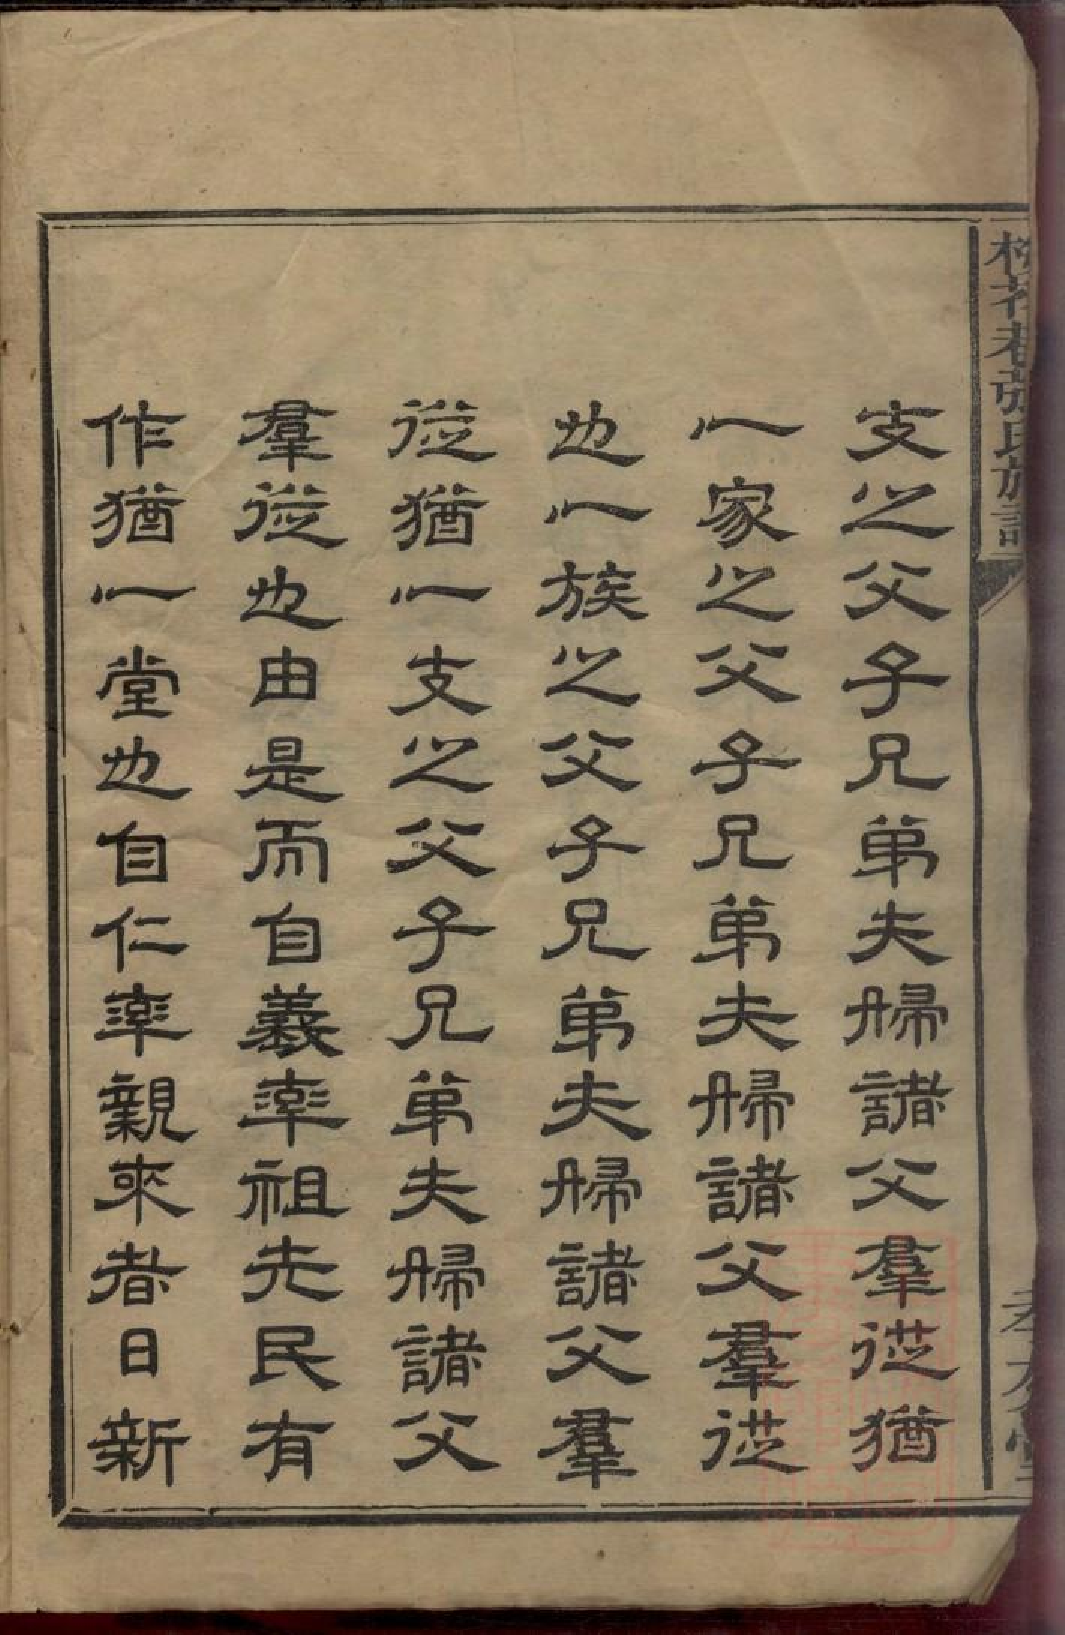 支之父子兄弟夫婦諸父羣從猶
一家之父子兄弟夫婦諸父羣從
也一族之父子兄弟夫婦諸父羣
從猶一支之父子兄弟夫婦諸父
羣從也由是而自義率祖先民有
作猶一堂也自仁率親來者日新